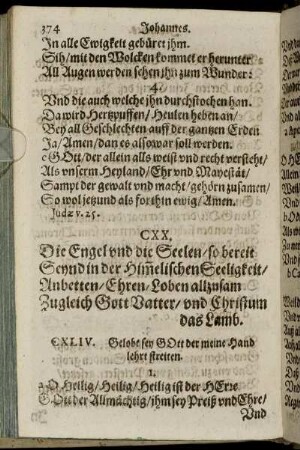 374 Johannes.
In alle Ewigkeit gebüret jhm.
Sih/ mit den Wolcken kommet er herunter
All Augen werden sehen jhn zum Wunder:
4.
Vnd die auch welche jhn durchstochen han.
Da wird Hertzpuffen/ Heulen heben an/
Bey all Geschlechten auff der gantzen Erden
Ja/ Amen/ dan es also war soll werden.
c GOtt/ der allein alls weist vnd recht versteht/
Als vnserm Heyland/ Ehr vnd Mayestät/
Sampt der gewalt vnd macht/ gehörn zusamen/
So wol jetzund als forthin ewig/ Amen.
Judæ v. 25.
CXX.
Die Engel vnd die Seelen/ so bereit
Seynd in der Him̃elischen Seeligkeit/
Anbetten/ Ehren/ Loben allzusam
Zugleich Gott Vatter/ vnd Christum
das Lamb.
CXLIV. Gelobt sey GOtt der meine Hand
lehrt streiten.
1.
a O Heilig/ Heilig/ Heilig ist der HErre
GOtt der Allmächtig/ jhm sey Preiß vnd Ehre/
Vnd